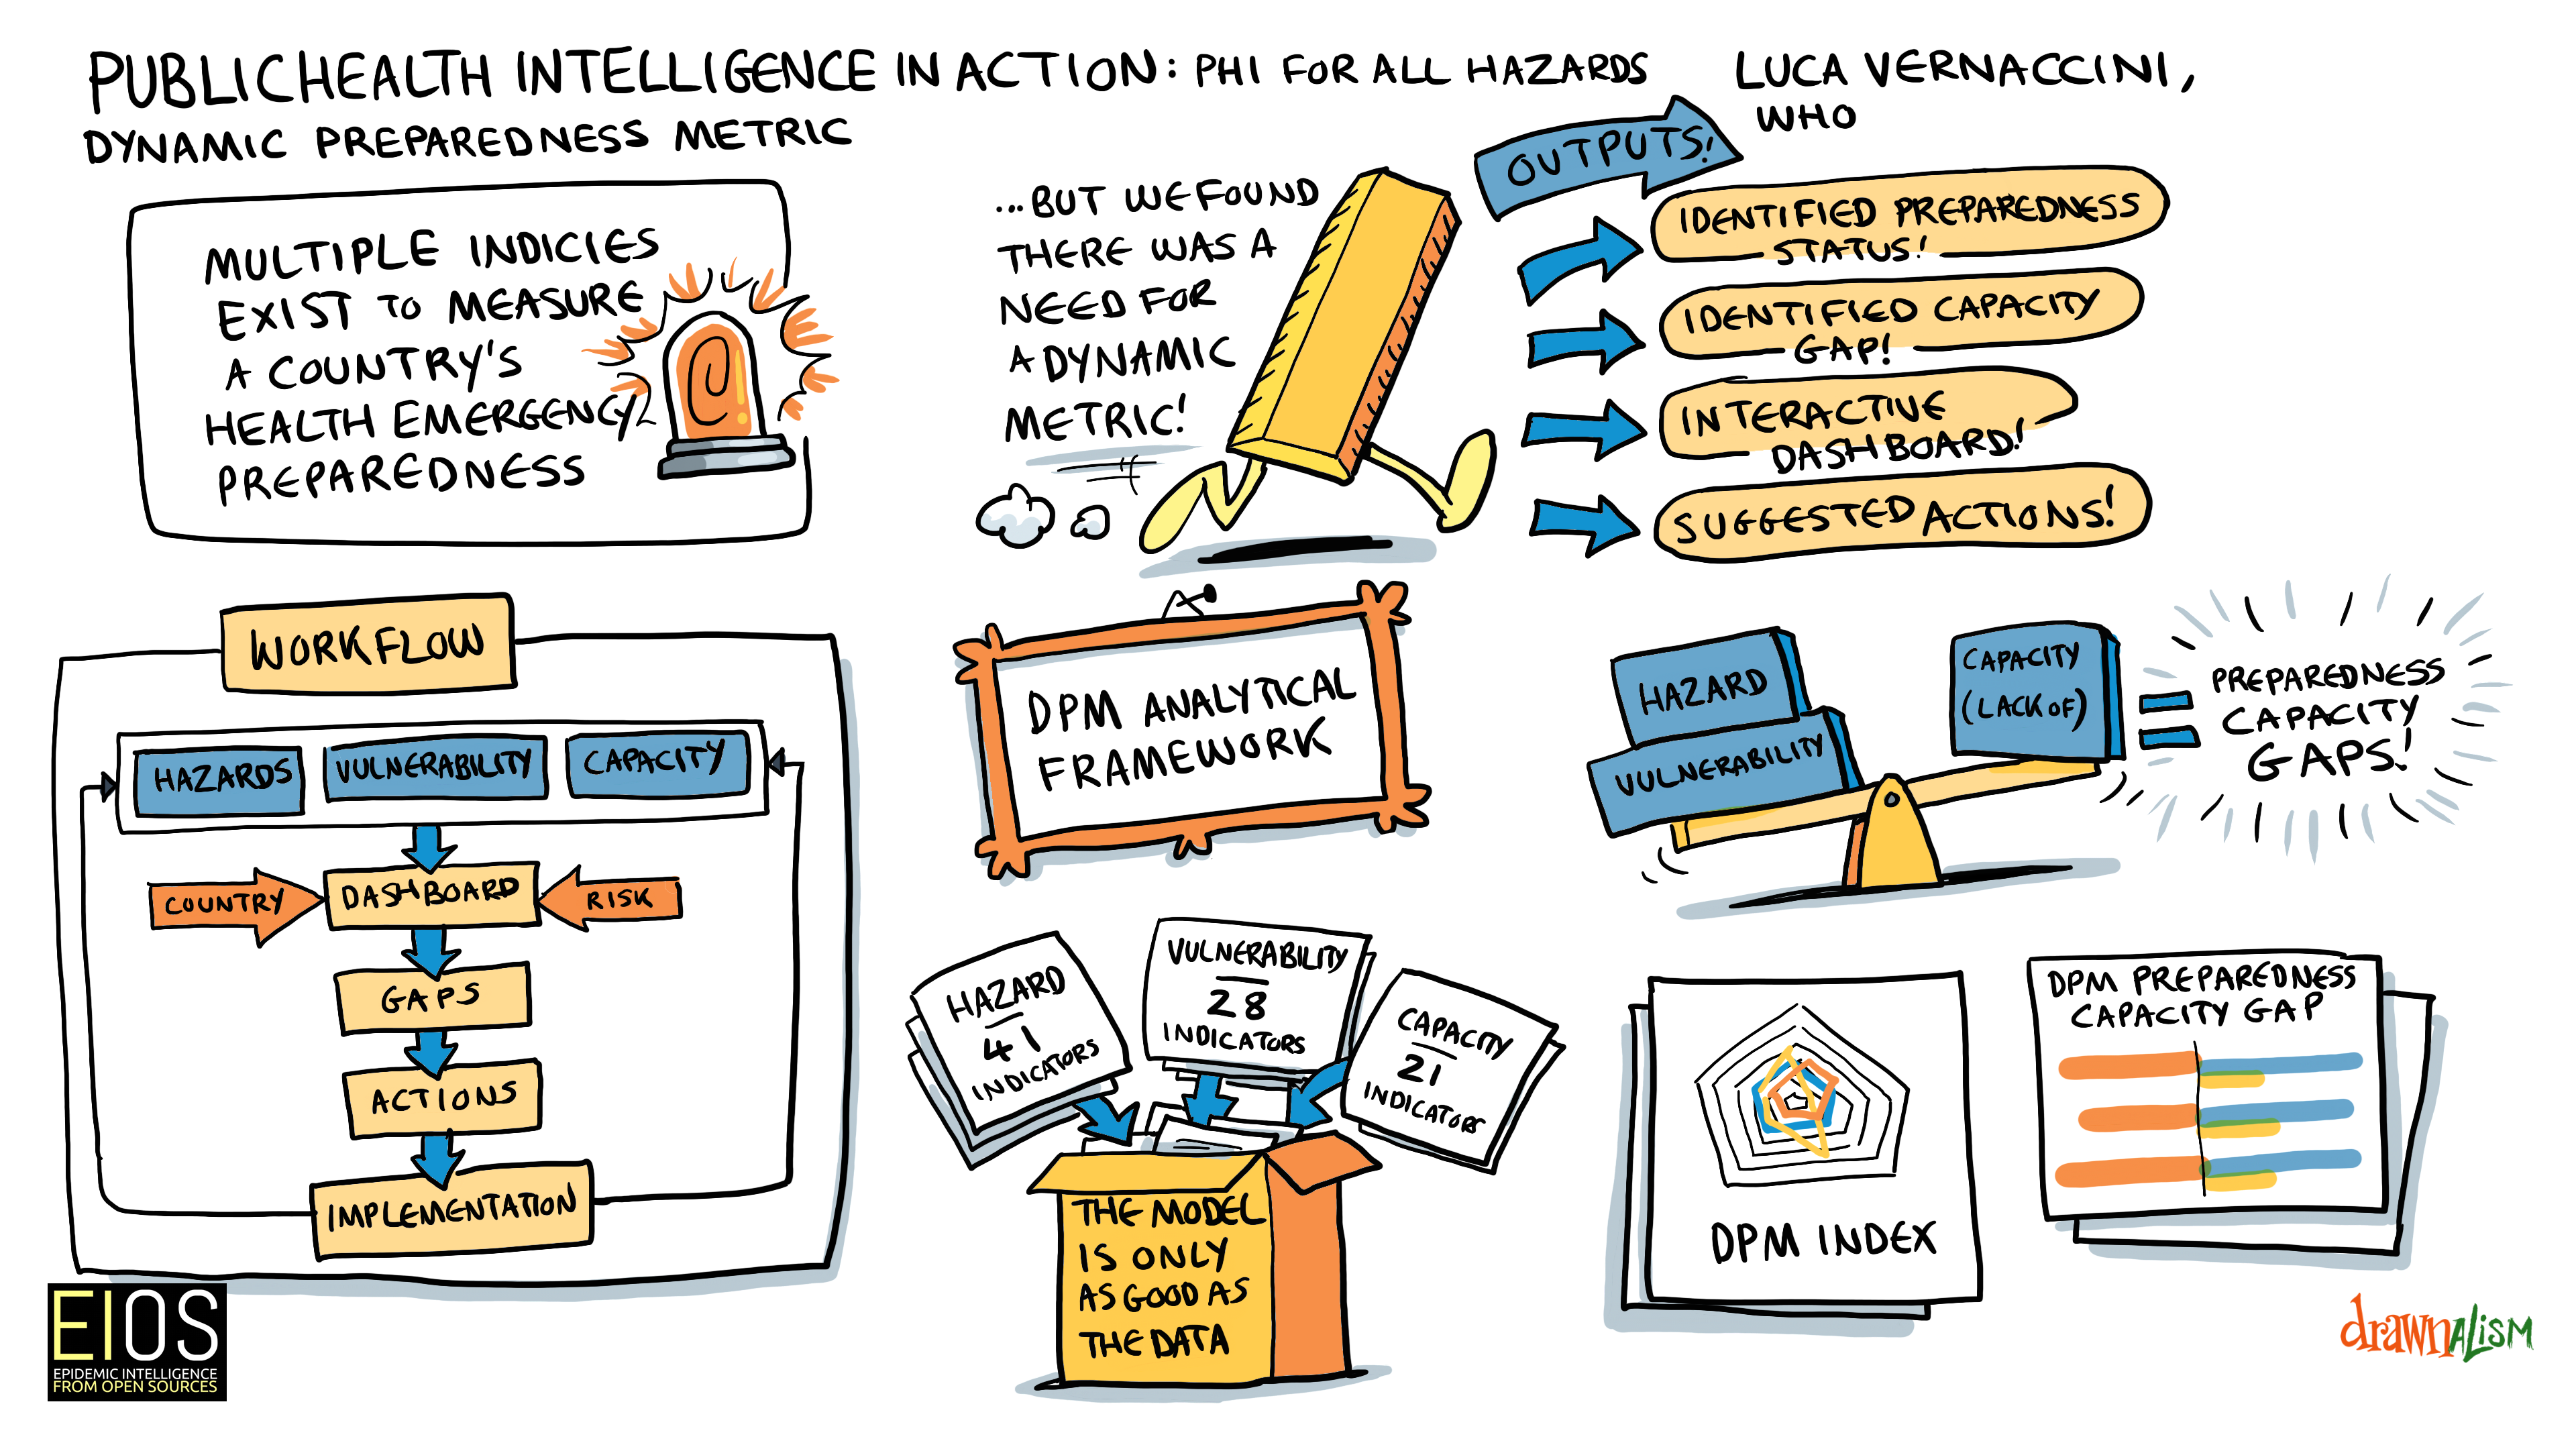 PUBLIC HEALTH INTELLIGENCE IN ACTION: PHI FOR ALL HAZARDS
DYNAMIC PREPAREDNESS METRIC
LUCA VERNACCINI,
WHO
MULTIPLE INDICIES
EXIST TO MEASURE
A COUNTRY'S
HEALTH EMERGENCY
PREPAREDNESS
...BUT WE FOUND
THERE WAS A
NEED FOR
A DYNAMIC
METRIC!
OUTPUTS!
IDENTIFIED PREPAREDNESS
STATUS!
IDENTIFIED CAPACITY
GAP!
INTERACTIVE
DASHBOARD!
SUGGESTED ACTIONS!
WORKFLOW
HAZARDS
VULNERABILITY
CAPACITY
COUNTRY
DASHBOARD
RISK
GAPS
ACTIONS
IMPLEMENTATION
DPM ANALYTICAL
FRAMEWORK
HAZARD
VULNERABILITY
CAPACITY
(LACK OF)
=
PREPAREDNESS
CAPACITY
GAPS!
HAZARD
41
INDICATORS
VULNERABILITY
28
INDICATORS
CAPACITY
21
INDICATORS
THE MODEL
IS ONLY
AS GOOD AS
THE DATA
DPM INDEX
DPM PREPAREDNESS
CAPACITY GAP
EIOS
EPIDEMIC INTELLIGENCE
FROM OPEN SOURCES
drawnALISM